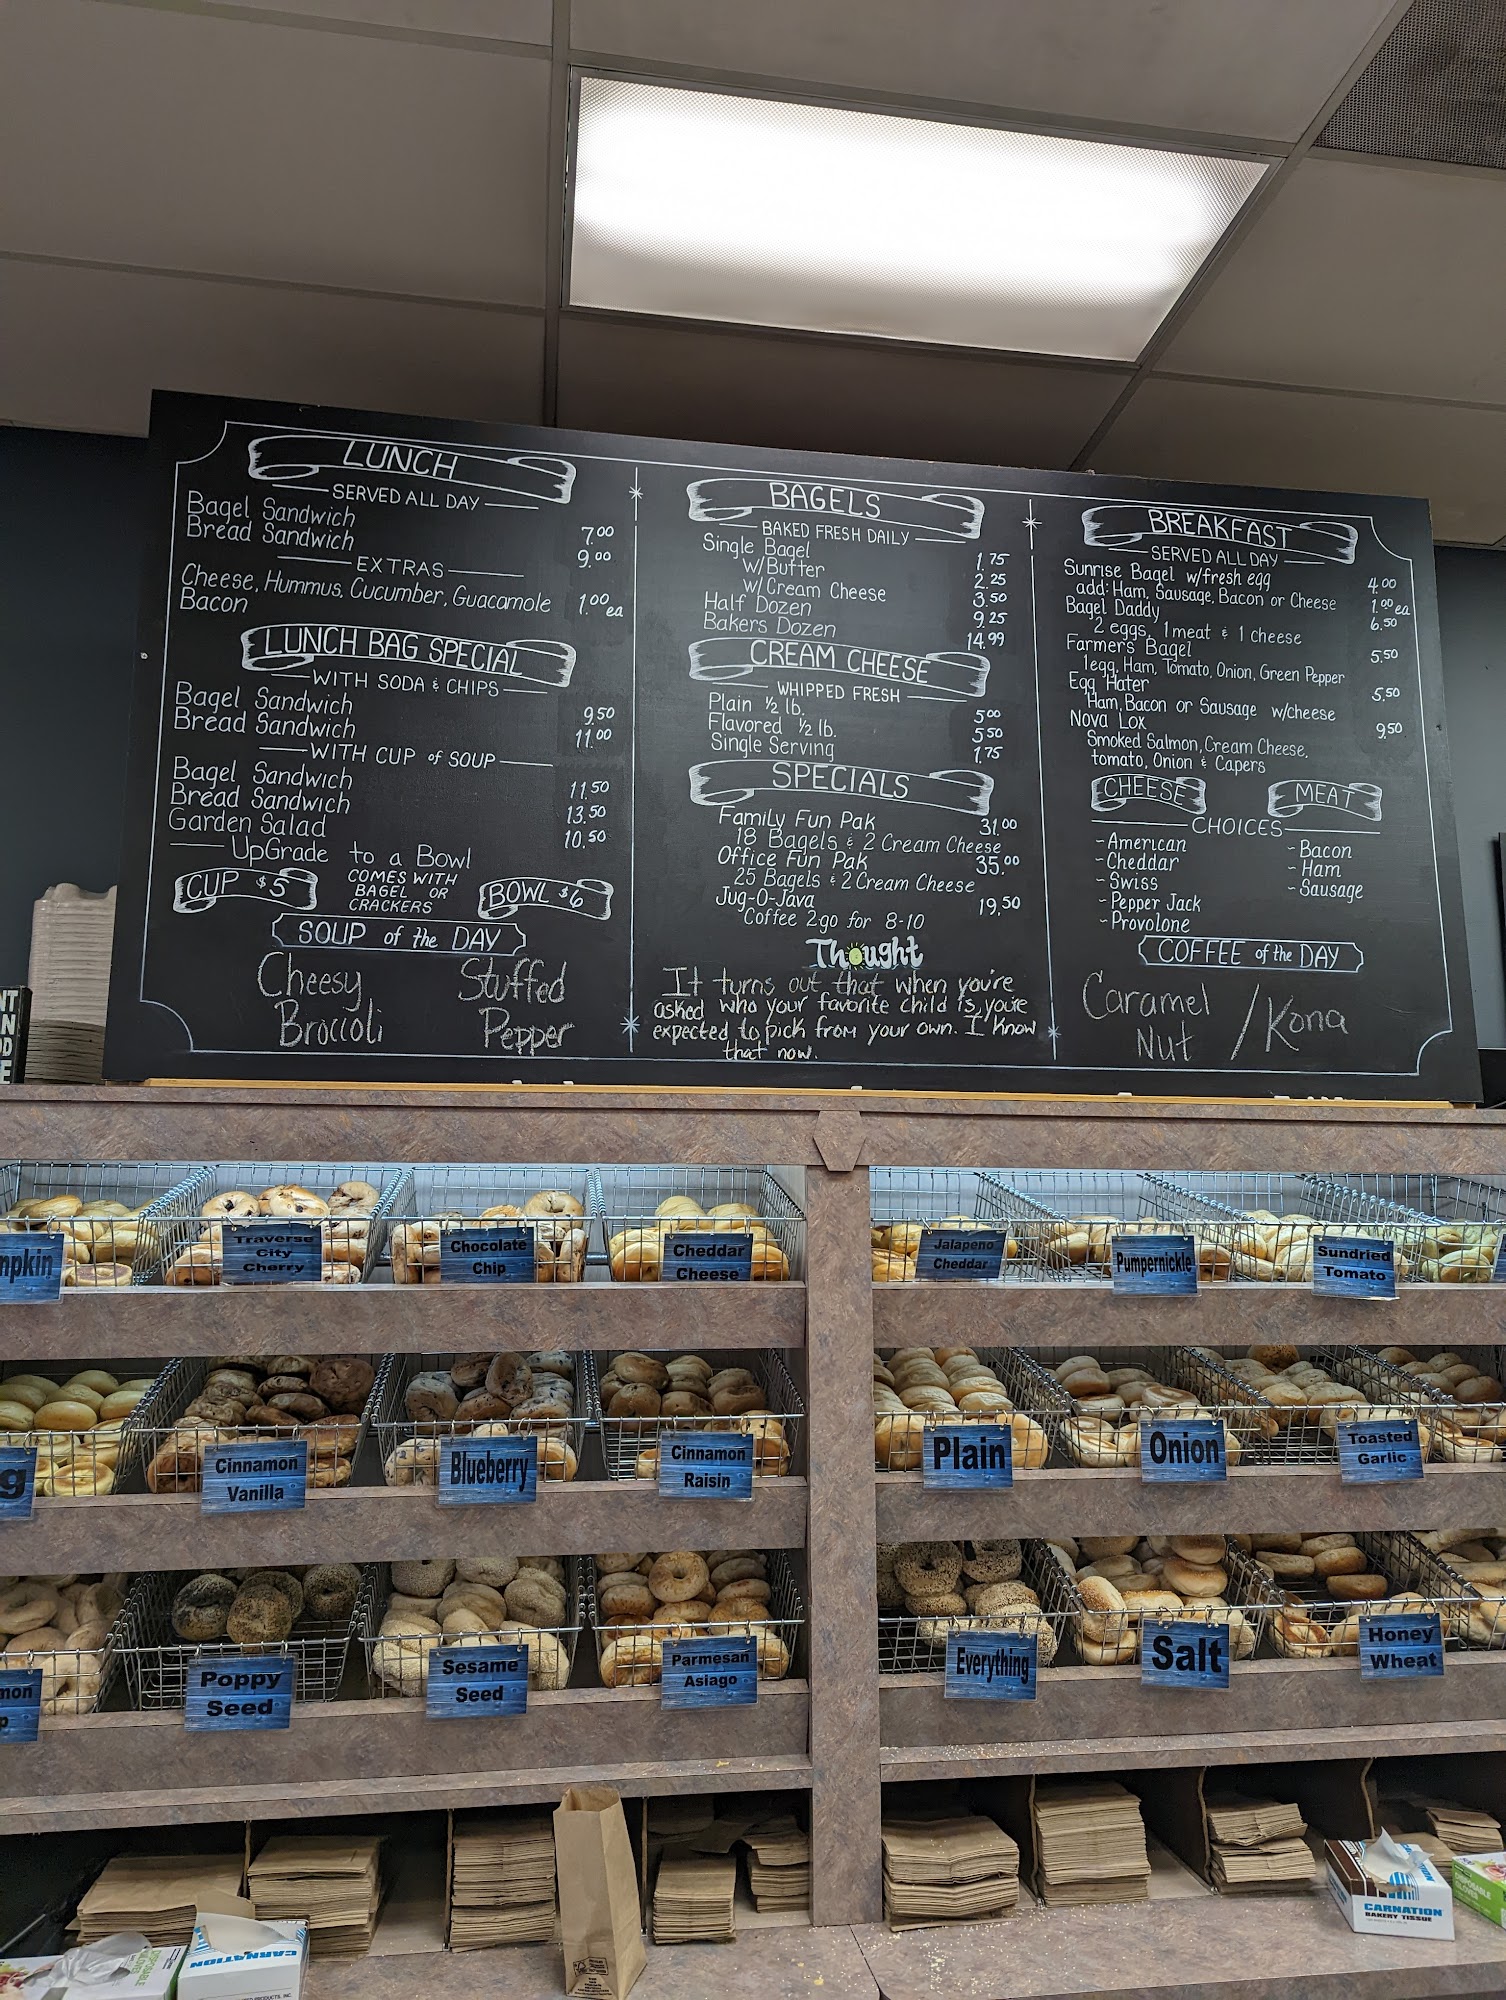 LUNCH
SERVED ALL DAY
Bagel Sandwich 7.00
Bread Sandwich 9.00
EXTRAS
Cheese, Hummus, Cucumber, Guacamole 1.00 ea
Bacon
LUNCH BAG SPECIAL
WITH SODA & CHIPS
Bagel Sandwich 9.50
Bread Sandwich 11.00
WITH CUP of SOUP
Bagel Sandwich 11.50
Bread Sandwich 13.50
Garden Salad 10.50
UpGrade to a Bowl
CUP $5
COMES WITH
BAGEL OR
CRACKERS
BOWL $6
SOUP of the DAY
Cheesy
Broccoli
Stuffed
Pepper
BAGELS
BAKED FRESH DAILY
Single Bagel 1.75
w/Butter 2.25
w/Cream Cheese 3.50
Half Dozen 9.25
Bakers Dozen 14.99
CREAM CHEESE
WHIPPED FRESH
Plain ½ lb. 5.00
Flavored ½ lb. 5.50
Single Serving 1.75
SPECIALS
Family Fun Pak 31.00
18 Bagels & 2 Cream Cheese
Office Fun Pak 35.00
25 Bagels & 2 Cream Cheese
Jug-O-Java 19.50
Coffee 2go for 8-10
Thought
It turns out that when you're
asked who your favorite child is, you're
expected to pick from your own. I know
that now.
BREAKFAST
SERVED ALL DAY
Sunrise Bagel w/fresh egg 4.00
add: Ham, Sausage, Bacon or Cheese 1.00 ea
Bagel Daddy 6.50
2 eggs, 1 meat & 1 cheese
Farmers Bagel 5.50
1 egg, Ham, Tomato, Onion, Green Pepper
Egg Hater 5.50
Ham, Bacon or Sausage w/cheese
Nova Lox 9.50
Smoked Salmon, Cream Cheese,
tomato, Onion & Capers
CHEESE MEAT
CHOICES
-American
-Cheddar
-Swiss
-Pepper Jack
-Provolone
-Bacon
-Ham
-Sausage
COFFEE of the DAY
Caramel
Nut / Kona
Traverse
City
Cherry
Chocolate
Chip
Cheddar
Cheese
Jalapeno
Cheddar
Pumpernickle
Sundried
Tomato
Cinnamon
Vanilla
Blueberry
Cinnamon
Raisin
Plain
Onion
Toasted
Garlic
Poppy
Seed
Sesame
Seed
Parmesan
Asiago
Everything
Salt
Honey
Wheat
CARNATION
CARNATION
BAKERY TISSUE